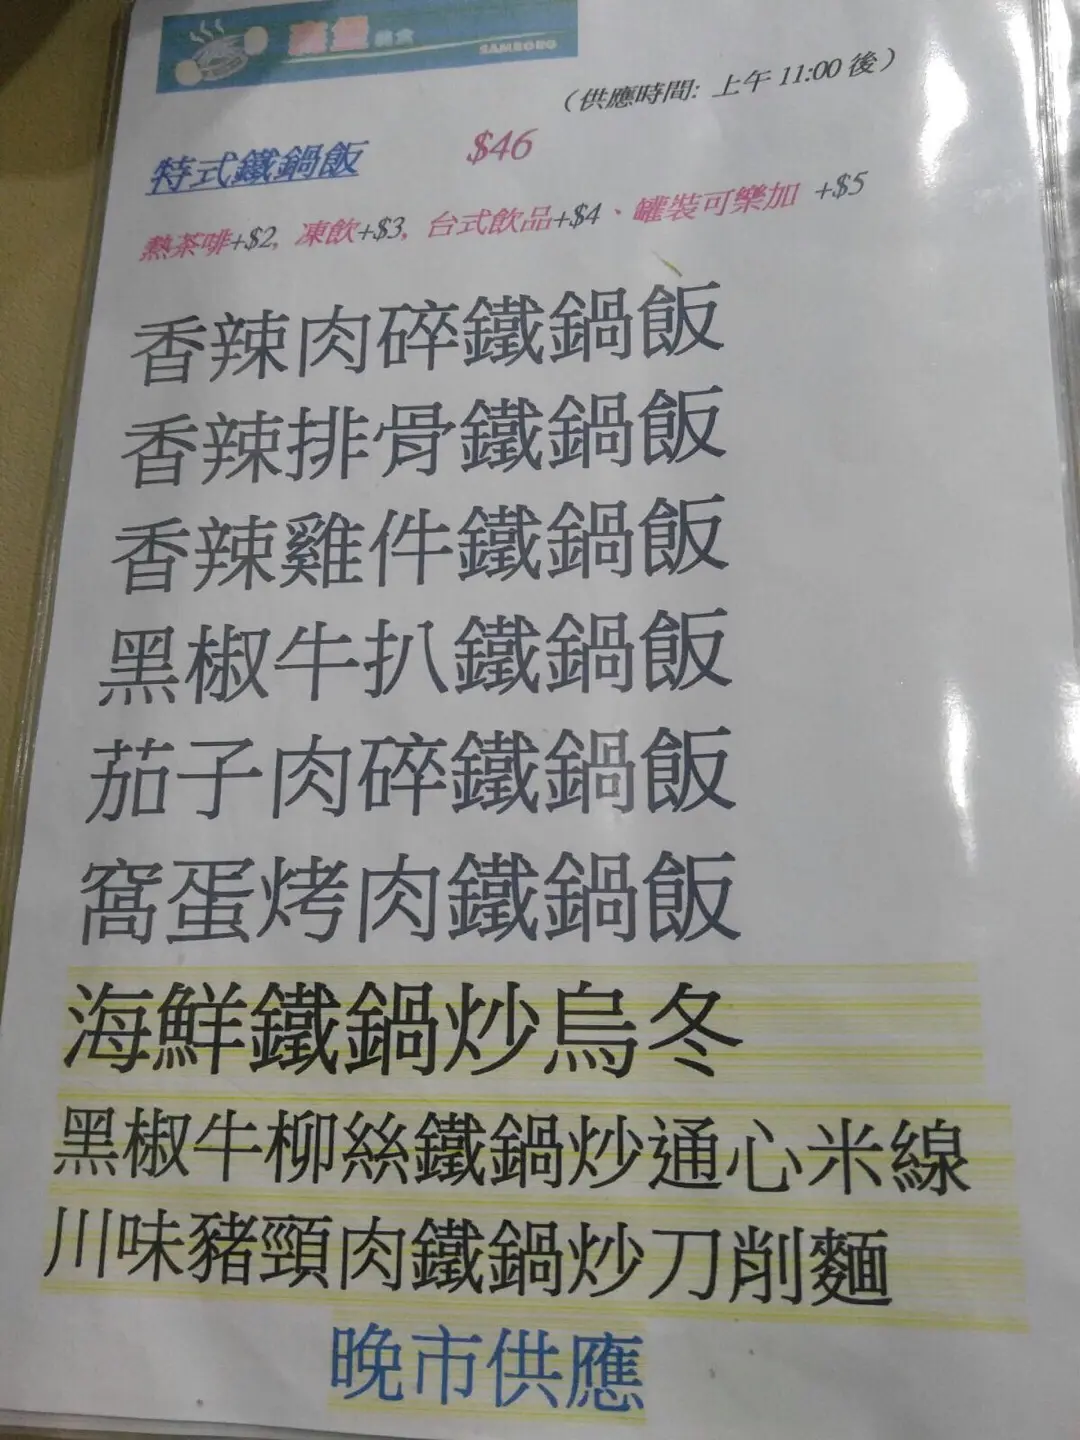 美食
SAMBORO
（供應時間: 上午 11:00 後）
特式鐵鍋飯 $46
熱茶啡+$2, 凍飲+$3, 台式飲品+$4、罐裝可樂加 +$5
香辣肉碎鐵鍋飯
香辣排骨鐵鍋飯
香辣雞件鐵鍋飯
黑椒牛扒鐵鍋飯
茄子肉碎鐵鍋飯
窩蛋烤肉鐵鍋飯
海鮮鐵鍋炒烏冬
黑椒牛柳絲鐵鍋炒通心米線
川味豬頸肉鐵鍋炒刀削麵
晚市供應